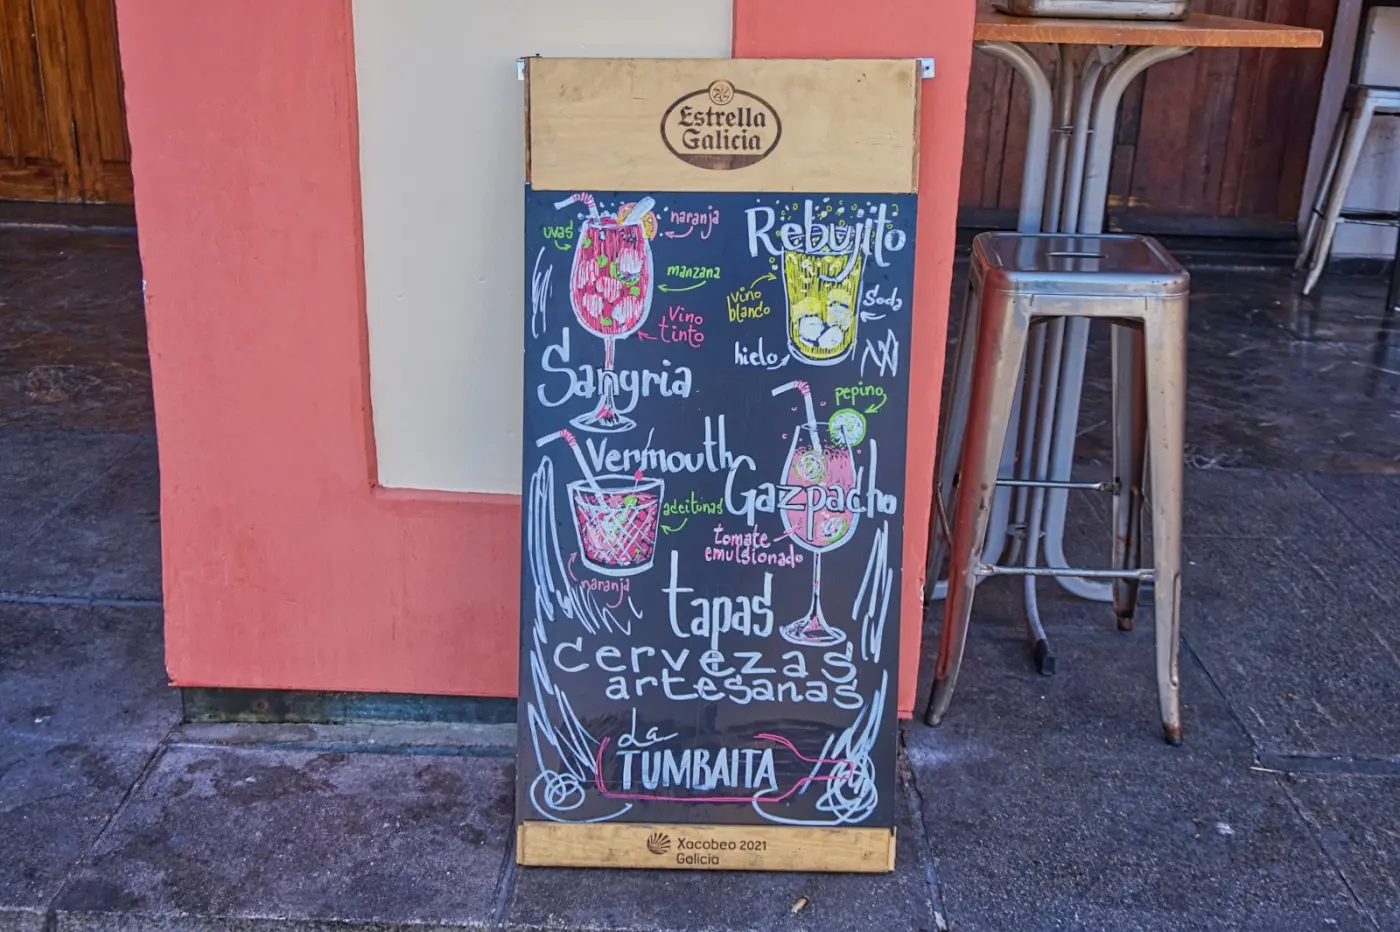 Estrella
Galicia
uvas
naranja
manzana
vino
tinto
Sangria
Rebujito
vino
blanco
Soda
hielo
Vermouth
adeitunas
naranja
pepino
Gazpacho
tomate
emulsionado
tapas
cervezas
artesanas
La
TUMBAITA
Xacobeo 2021
Galicia